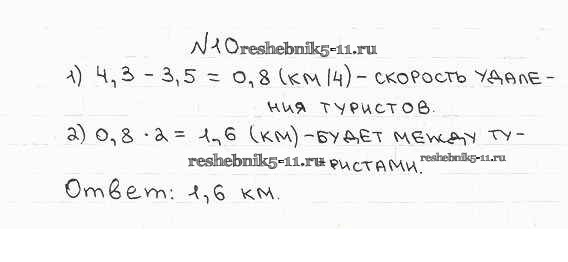 №10 reshebnik5-11.ru
1) 4,3 - 3,5 = 0,8 (км/ч) - скорость удале-
ния туристов.
2) 0,8 · 2 = 1,6 (км) - будет между ту-
reshebnik5-11.ru ристами. reshebnik5-11.ru
Ответ: 1,6 км.